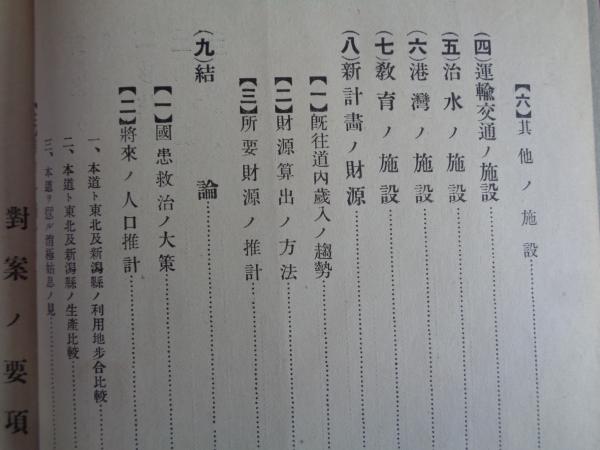 【六】其他ノ施設
(四)運輸交通ノ施設
(五)治水ノ施設
(六)港灣ノ施設
(七)敎育ノ施設
(八)新計畫ノ財源
【一】旣往道內歲入ノ趨勢
【二】財源算出ノ方法
【三】所要財源ノ推計
(九)結論
【一】國患救治ノ大策
【二】將來ノ人口推計
一、本道ト東北及新潟縣ノ利用地步合比較
二、本道ト東北及新潟縣ノ生產比較
三、本道ヲ ル消極姑息ノ見
對案ノ要項